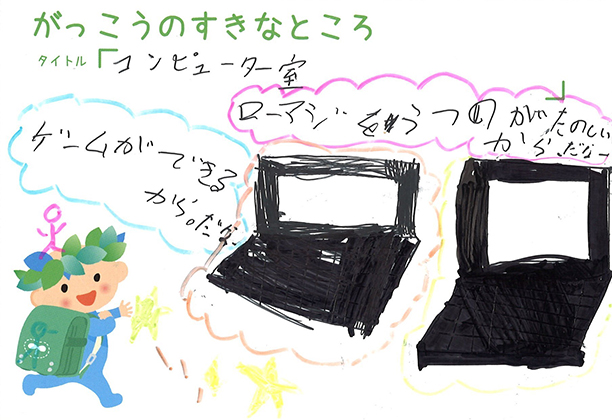 がっこうのすきなところ
タイトル「コンピューター室」
ローマジをうつのがたのしい
からだな~
ゲームができる
から。だな~